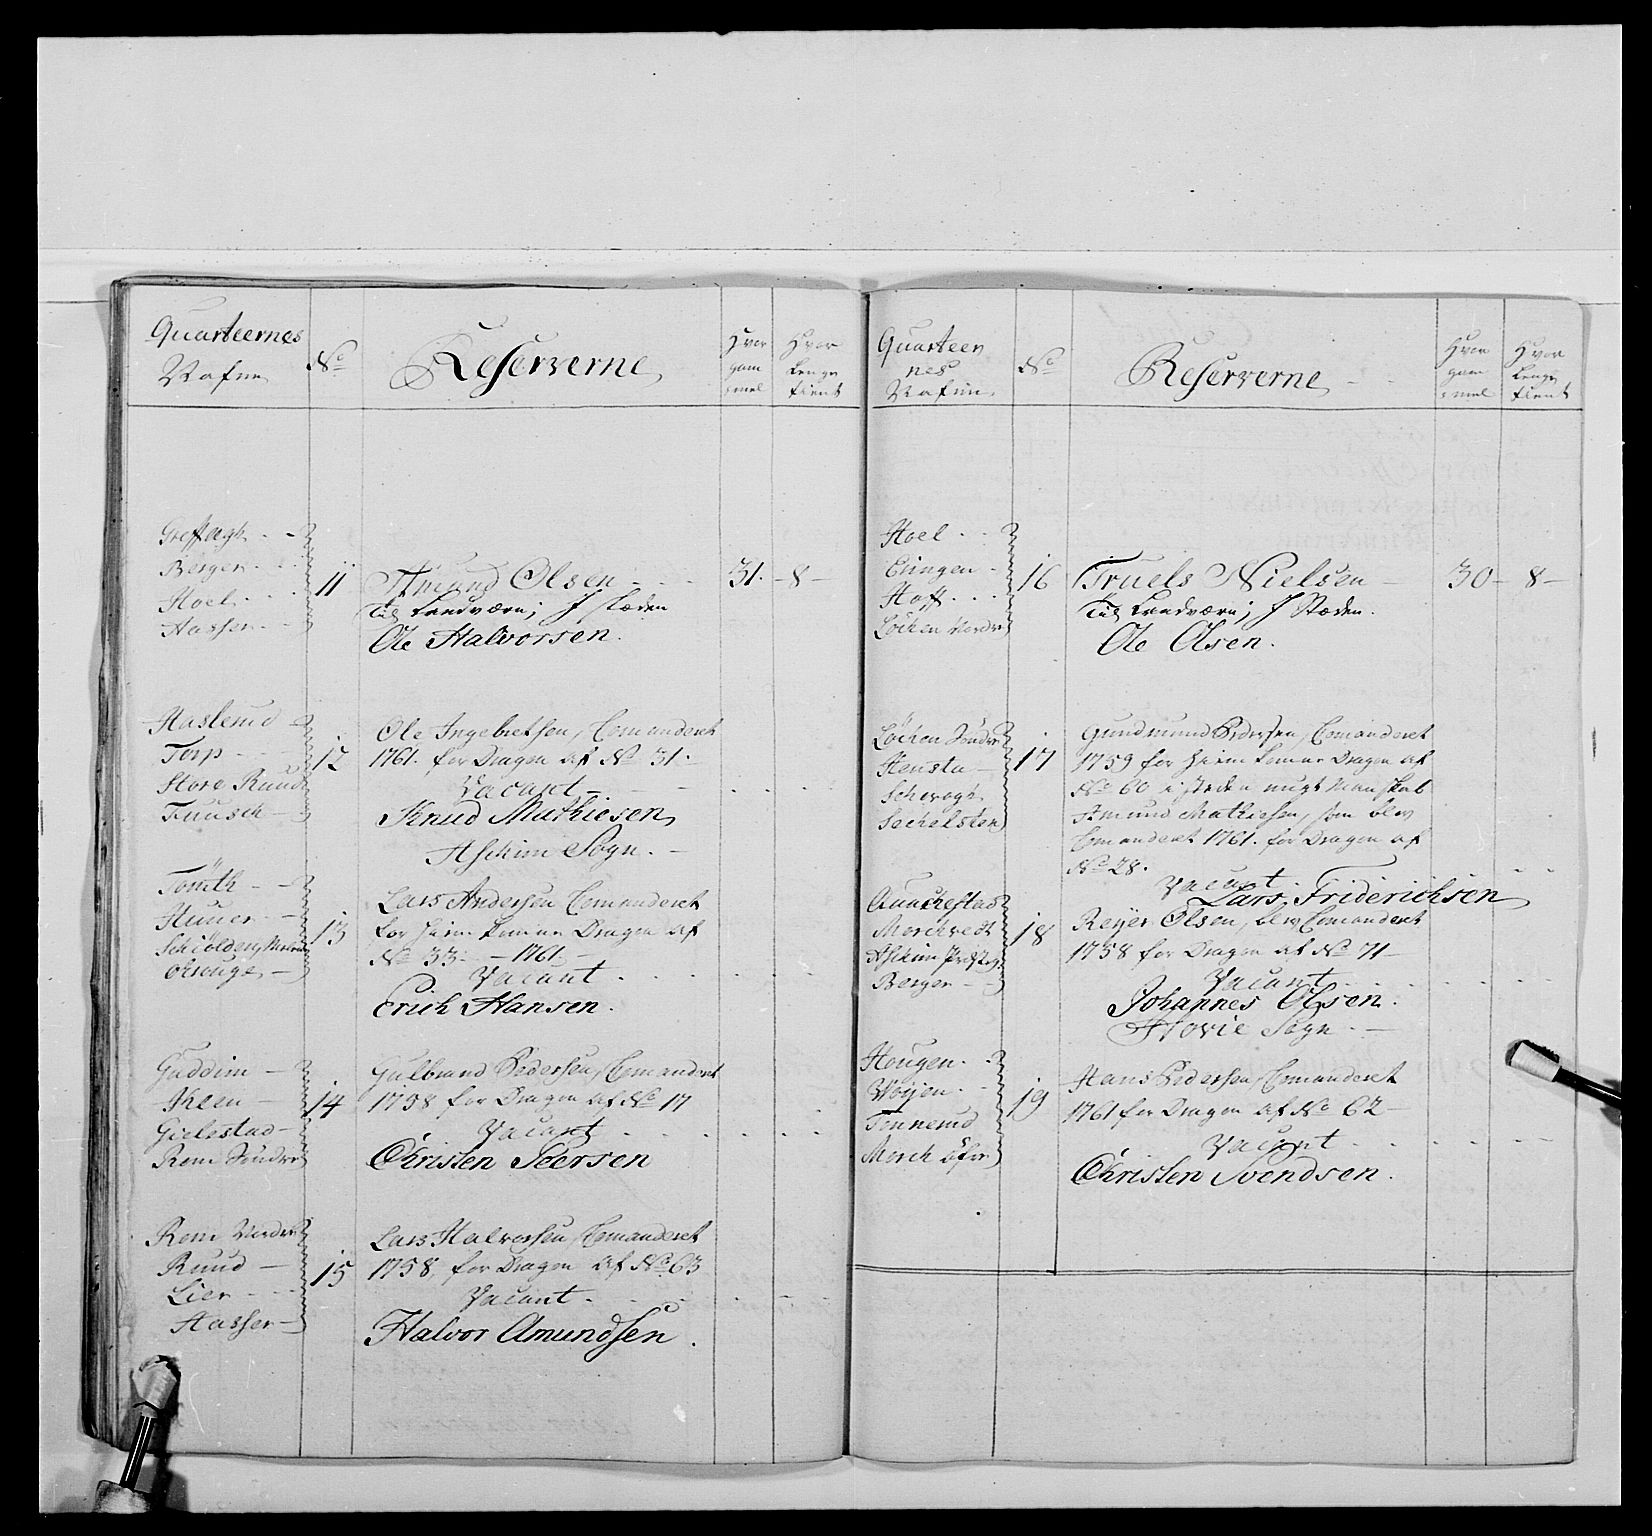 Quarteernes
Nafne
No
Reserverne
Hvor
gam
mel
Hvor
lenge
tient
Greffsegh
Berger
Hoel
Hasser
11
Amund Olsen
31.
8
Til Landværn; I stæden
Ole Halvorsen.
Haslerud
Torp
Store Ruud
Tuusch
12
Ole Ingebretsen, Comanderet
1761. for Dragon af No 31.
Vacant
Knud Mathiesen
Aschim Sogn.
Tomth
Huuer
Schiolden
13
Lars Andersen Comanderet
for Dragon af
No 33 1761
Vacant
Erich Hansen.
Gaddim
Gielestad
Rom Søndre
14
Gulbrand Pedersen, Comanderet
1758 for Dragon af No 17
Vacant
Christen Peersen
Rom Nordre
Ruud
Lier
Hasser
15
Lars Halvorsen, Comanderet
1758, for Dragon af No 63
Vacant
Halvor Amundsen.
Quarteer
nes
Nafne
No
Reserverne
Hvor
gam
mel
Hvor
lenge
tient
Hoel
Eingen
Hoff
Løchen Nordre
16
Truels Nielsen
30
8
Til Landværn; I Stæden.
Ole Olsen.
Løchen Søndre
Hensta
Schvogh
Sechelsten
17
Gundmund Pedersen, Comanderet
1759 for Dragon af
No 60 i steden nygt Manskab
Amund Mathiesen, som blev
Comanderet 1761. for Dragon af
No 28.
Vacant
Lars Friderichsen
Morchvedt
Aschim
Berger
18
Reyer Olsen, blev Comanderet
1758 for Dragon af No 71
Vacant
Johannes Olsen.
Hovie Sogn.
Hougen
Woyen
Finnerud
Morch øfre
19
Hans Pedersen, Comanderet
1761 for Dragon af No 62
Vacant
Christen Svendsen.